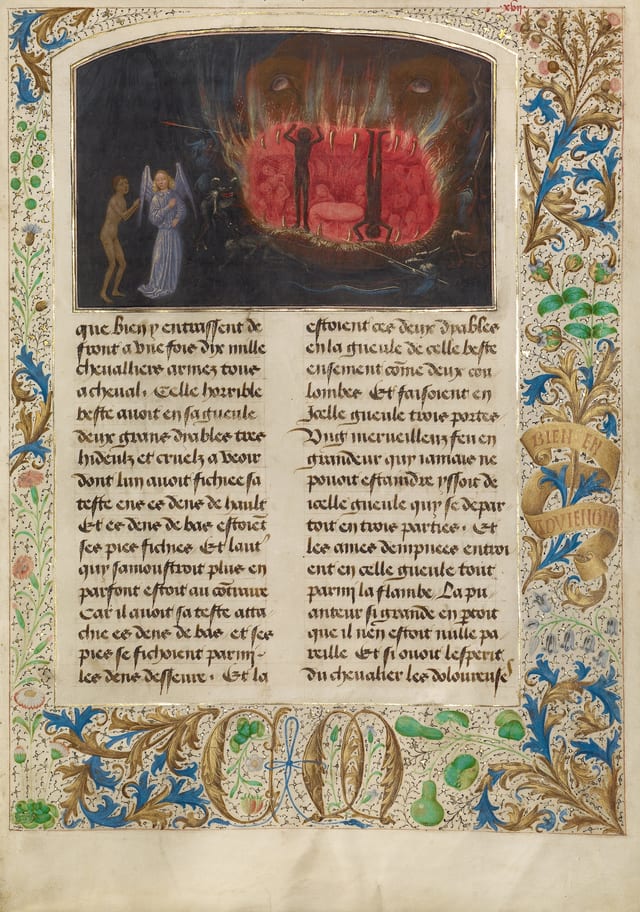 .xvij.
que bien y entraissent de
front a vne fois dix mille
cheualliers armez tous
a cheual. Celle horrible
beste auoit en sa gueule
deux grans dyables tres
hideulz et cruelz a veoir
dont lun auoit fichiee sa
teste ens es dens de hault
Et es dens de bas estoiēt
ses pies fichies. Et lautˀ
qui samoustroit plus en
parfont estoit au cōtraire
Car il auoit sa teste atta
chie es dens de bas et ses
pies se fichoient parmi
les dens desseure. Et la
estoient ces deux dyables
en la gueule de celle beste
ensement cōme deux cou
lombes Et faisoient en
Icelle gueule trois portes
Vng merueilleux feu en
grandeur qui iamais ne
pouoit estaindre yssoit de
icelle gueule qui se depar
toit en trois parties. Et
les ames dempnees entroi
ent en celle gueule tout
parmi la flambe. La pu
anteur si grande en ꝑtoit
que il nen estoit nulle pa
reille Et si ouoit lesperit
du cheualier les doloureuseˢ
BIEN EN
AVIENGNE
C M